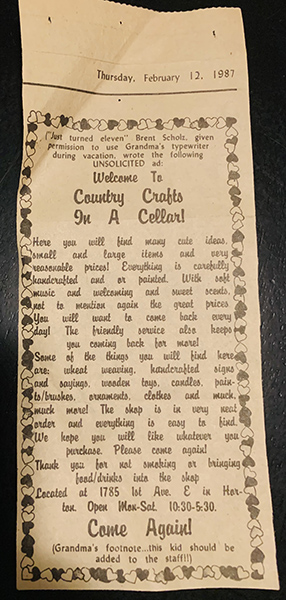 Thursday, February 12, 1987
("Just turned eleven" Brent Scholz, given
permission to use Grandma's typewriter
during vacation, wrote the following
UNSOLICITED ad:
Welcome To
Country Crafts
In A Cellar!
Here you will find many cute ideas,
small and large items and very
reasonable prices! Everything is carefully
handcrafted and or painted. With soft
music and welcoming and sweet scents,
not to mention again the great prices
You will want to come back every
day! The friendly service also keeps
you coming back for more!
Some of the things you will find here
are: wheat weaving, handcrafted signs
and sayings, wooden toys, candles, pain-
ts/brushes, ornaments, clothes and much,
much more! The shop is in very neat
order and everything is easy to find.
We hope you will like whatever you
purchase. Please come again!
Thank you for not smoking or bringing
food/drinks into the shop
Located at 1785 1st Ave. E in Hor-
ton. Open Mon-Sat. 10:30-5:30.
Come Again!
(Grandma's footnote...this kid should be
added to the staff!!)